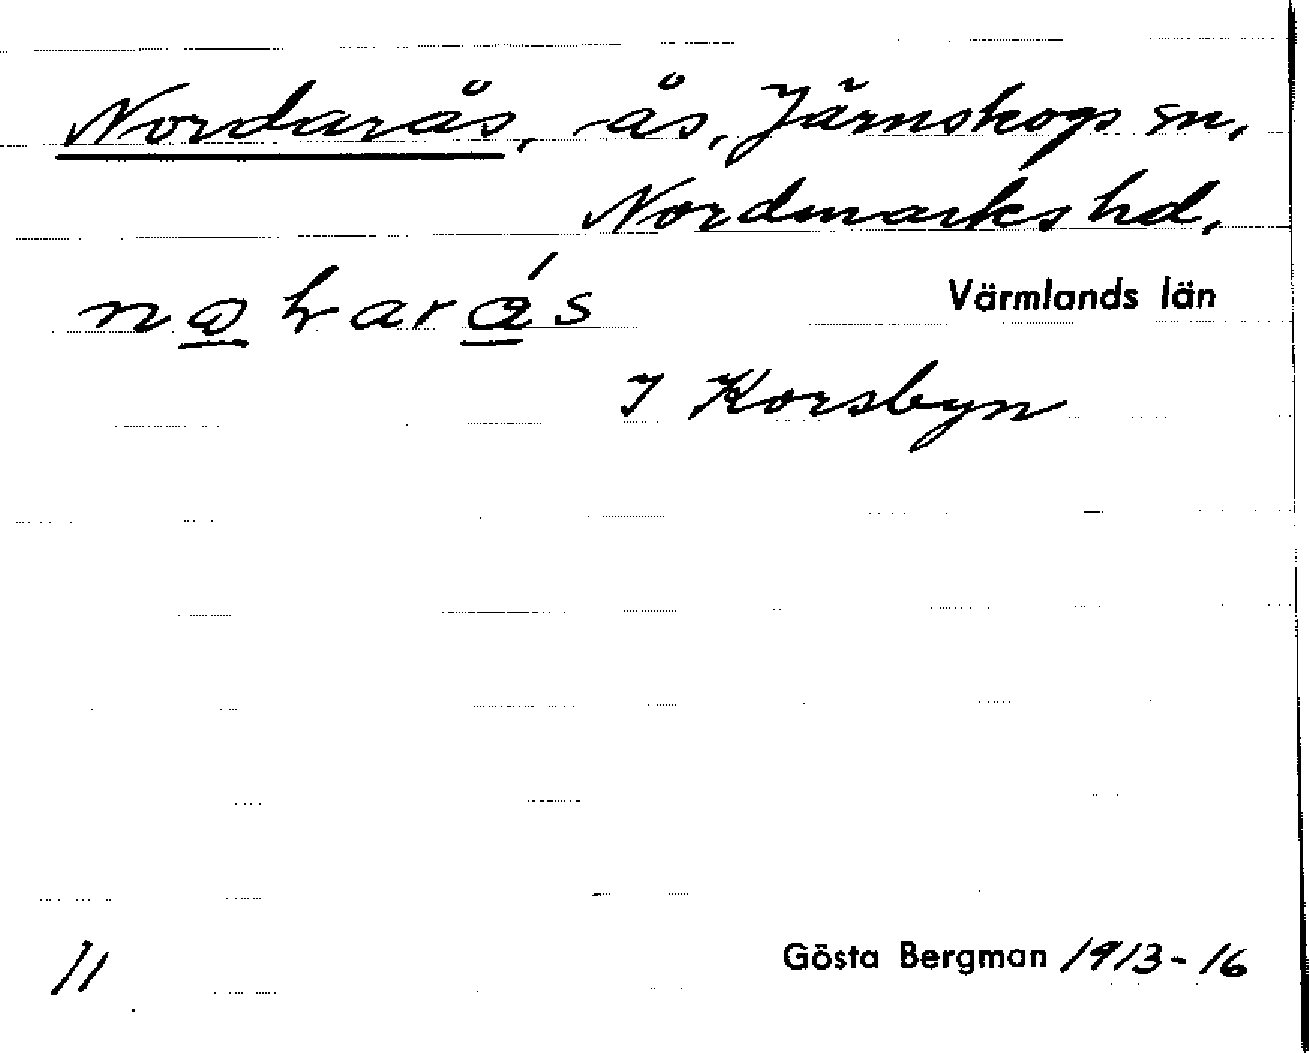 Nordarås, -ås, Järnskogs sn,
Nordmarks hd,
Värmlands län
I Korsbyn
11
Gösta Bergman 1913-16